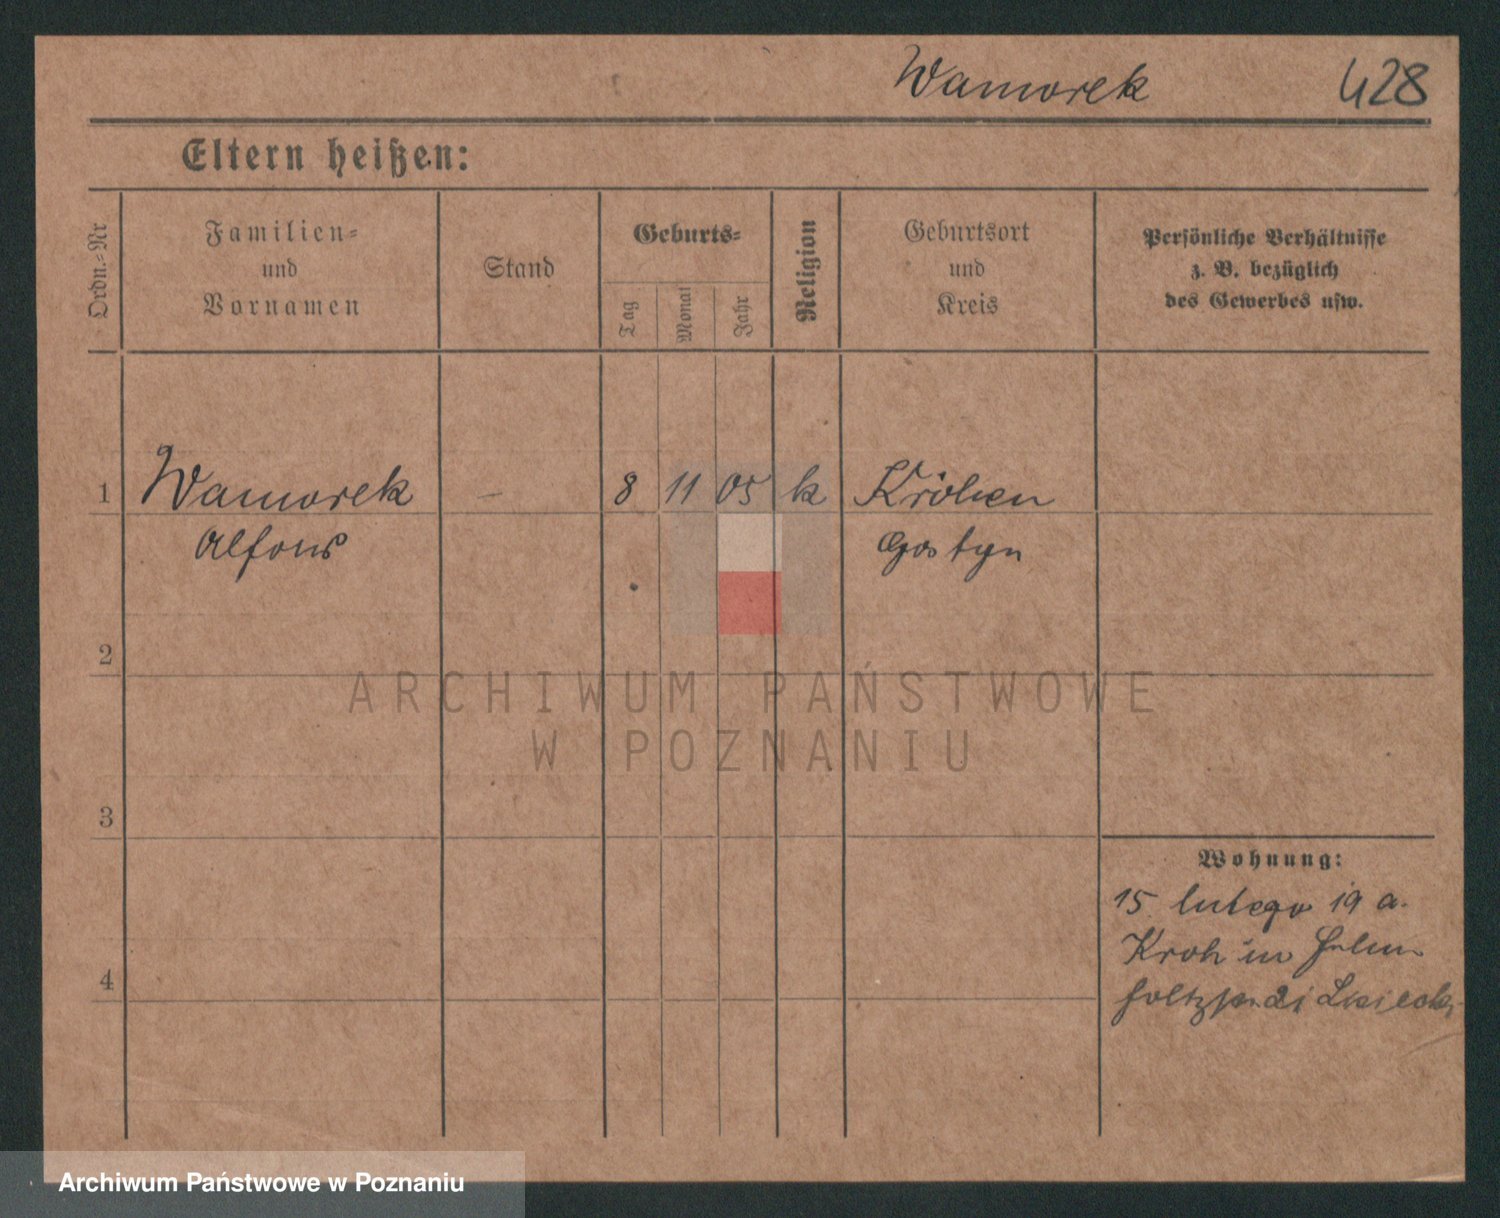 Wamorek 428
Eltern heißen:
Ordn.-Nr
Familien-
und
Vornamen
Stand
Geburts-
Tag
Monat
Jahr
Religion
Geburtsort
und
Kreis
Persönliche Verhältnisse
z. B. bezüglich
des Gewerbes usw.
1 Wamorek – 8 11 05 k Kröben
Alfons Gostyn
2
3
4
Wohnung:
15 lutego 19 a.
Kroh in
ARCHIWUM PAŃSTWOWE
W POZNANIU
Archiwum Państwowe w Poznaniu